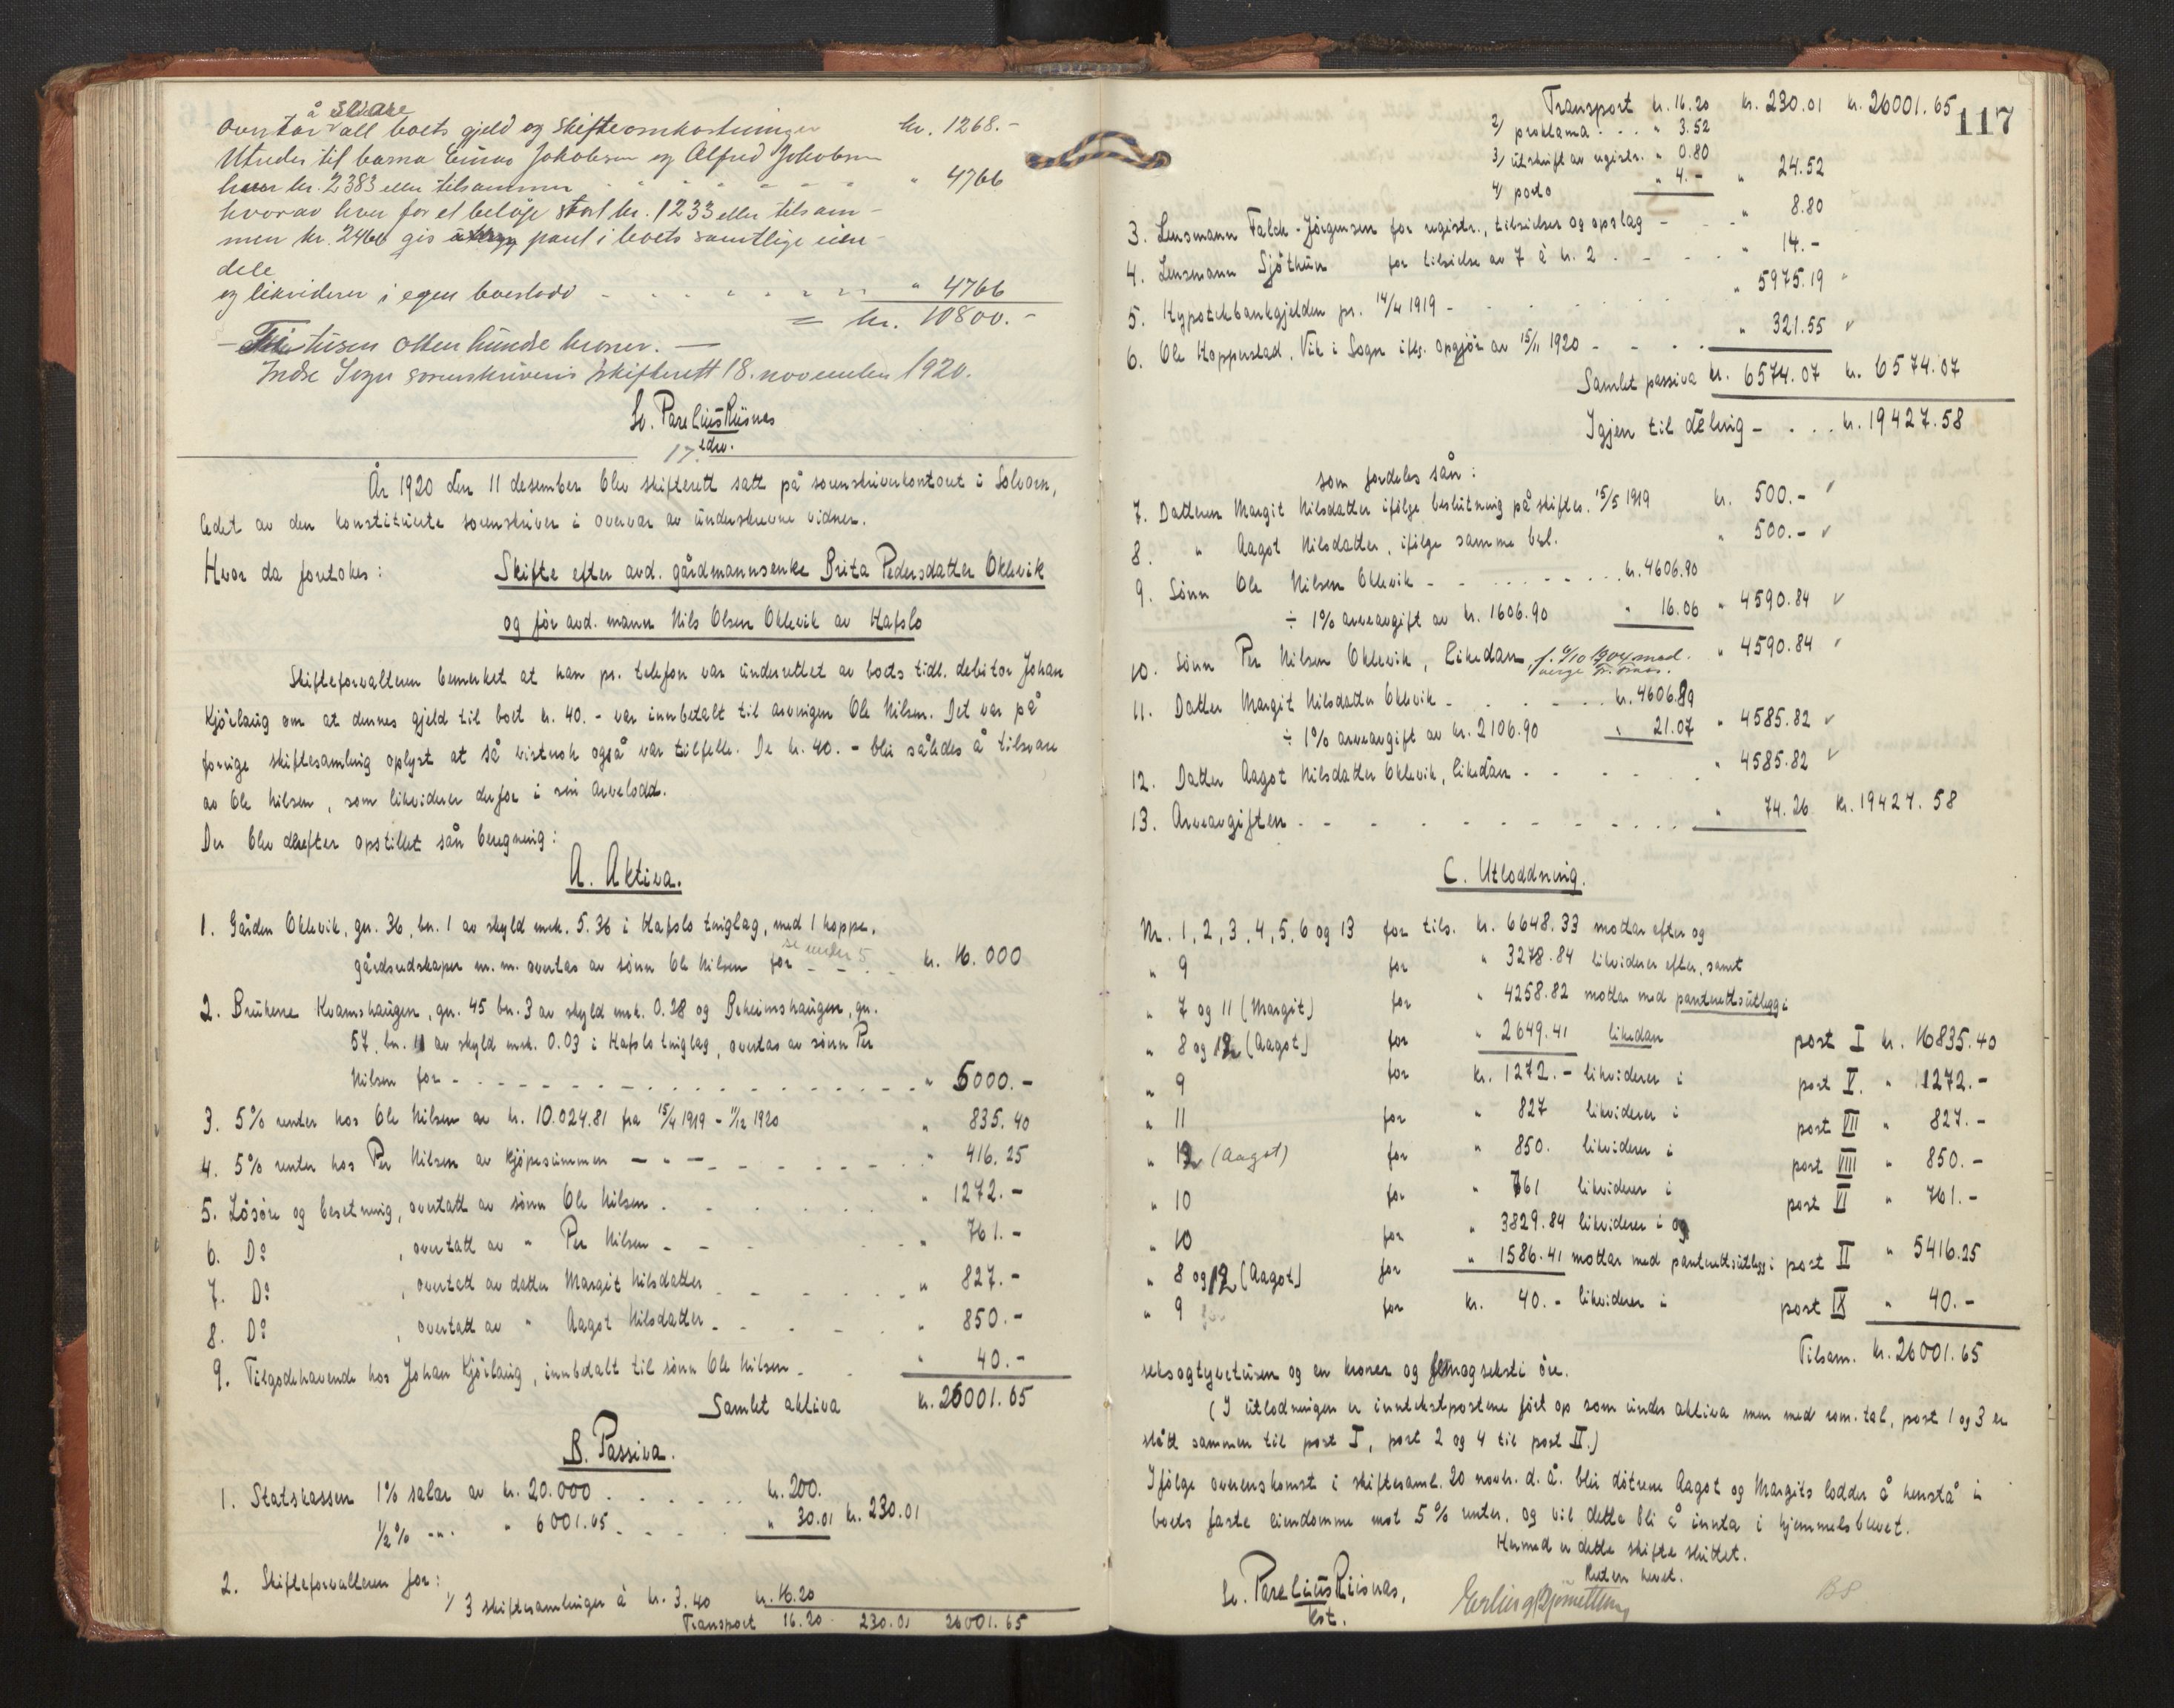 å svare
overtar all boets gjeld og skifteomkostninger kr. 1268.-
Utreder til barna Einar Jakobsen og Alfred Jakobsen
hver kr. 2383 eller tilsammen " 4766
hvorav hver for et beløp stort kr. 1233 eller tilsam-
men kr. 2466 gis pant i boets samtlige eien-
dele
og likviderer i egen boeslodd " 4766
= kr. 10800.-
- Titusen otte hundre kroner. -
Indre Sogn sorenskriveris skifterett 18. november 1920.
Sv. Parelius Riisnæs
edw.
17.
År 1920 den 11 desember blev skifterett satt på sorenskriverkontoret i Solvorn,
ledet av den konstituerte sorenskriver i overvær av underskrevne vidner.
Hvor da foretokes: Skifte efter avd. gårdmannsenke Brita Pedersdatter Oklevik
og før avd. mann Nils Olsen Oklevik av Hafslo
Skifteforvalteren bemerket at han pr. telefon var underrettet av boets tidl. debitor Johan
Kjörlaug om at dennes gjeld til boet kr. 40.- var innbetalt til arvingen Ole Nilsen. Det var på
forrige skiftesamling oplyst at så vistnok også var tilfelle. De kr. 40.- blir således å tilsvare
av Ole Nilsen, som likviderer derfor i sin arvelodd.
Der blev derefter opstillet sån beregning:
A. Aktiva.
1. Gården Oklevik, gr. 36, br. 1 av skyld mrk. 5.36 i Hafslo tinglag, med 1 hoppe,
se under 5
gårdsredskaper m. m. overtas av sønn Ole Nilsen for kr. 16.000
2. Brukene Kvamshaugen, gr. 45 br. 3 av skyld mrk. 0.28 og Beheimshaugen, gr.
57, br. 11 av skyld mrk. 0.03 i Hafslo tinglag, overtas av sønn Per
Nilsen for " 5000.-
3. 5% renter hos Ole Nilsen av kr. 10.024.81 fra 15/4 1919 - 11/12 1920 " 835.40
4. 5% renter hos Per Nilsen av kjöpesummen - " - " 416.25
5. Lösöre og besetning, overtatt av sønn Ole Nilsen " 1272.-
6. Do , overtatt av " Per Nilsen " 761.-
7. Do , overtatt av datter Margit Nilsdatter " 827.-
8. Do , overtatt av " Aagot Nilsdatter " 850.-
9. Tilgodehavende hos Johan Kjörlaug, innbetalt til sønn Ole Nilsen " 40.-
Samlet aktiva kr. 26001.65
B. Passiva.
1. Statskassen 1% salær av kr. 20.000 kr. 200.
1/2% -"- " 6001.65 " 30.01 kr. 230.01
2. Skifteforvalteren for:
1/ 3 skiftesamlinger à kr. 3.40 kr. 16.20
Transport 16.20 230.01 26001.65
117
Transport kr. 16.20 kr. 230.01 kr. 26001.65
2/ proklama " 3.52
3/ utskrift av registr. " 0.80
4/ porto " 4.- " 24.52
3. Lensmann Falck-Jörgensen for registr., tilsidelser og opslag " 8.80
4. Lensmann Sjöthun for tilsidelse av 7 à kr. 2 " 14.-
5. Hypotekbankgjelden pr. 14/4 1919 - " 5975.19
6. Ole Hopperstad, Vik i Sogn iflg. opgjör av 15/11 1920 " 321.55
Samlet passiva kr. 6574.07 kr. 6574.07
Igjen til deling - kr. 19427.58
som fordeles sån:
7. Datteren Margit Nilsdatter ifölge beslutning på skiftes. 15/5 1919 kr. 500.-
8. " Aagot Nilsdatter, ifölge samme besl. " 500.-
9. Sönn Ole Nilsen Oklevik - kr. 4606.90
÷ 1% arveavgift av kr. 1606.90 " 16.06 " 4590.84
10. Sönn Per Nilsen Oklevik, likedan, f. 4/10 1904 med " 4590.84
verge
11. Datter Margit Nilsdatter Oklevik - kr. 4606.89
÷ 1% arveavgift av kr. 2106.90 " 21.07 " 4585.82
12. Datter Aagot Nilsdatter Oklevik, likedan " 4585.82
13. Arveavgiften " 74.26 kr. 19427.58
C. Utloddning.
Nr. 1, 2, 3, 4, 5, 6 og 13 for tils. kr. 6648.33 mottar efter og
" 9 for " 3278.84 likviderer efter, samt
" 7 og 11 (Margit) for " 4258.82 mottar med panterettsutlegg i
" 8 og 12 (Aagot) for " 2649.41 likedan post I kr. 16835.40
" 9 for kr. 1272.- likviderer i post V. " 1272.-
" 11 for " 827 likviderer i post VII " 827.-
" 12 (Aagot) for " 850. likviderer i post VIII " 850.-
" 10 for " 761 likviderer i post VI " 761.-
" 10 for " 3829.84 likviderer i og
" 8 og 12 (Aagot) for " 1586.41 mottar med panterettsutlegg i post II " 5416.25
" 9 for kr. 40.- likviderer i post IX " 40.-
Tilsam. kr. 26001.65
seksogtyvetusen og en kroner og femogseksti öre.
(I utlodningen er inntektspostene fört op som under aktiva men med rom. tal, post 1 og 3 er
slått sammen til post I, post 2 og 4 til post II.)
Ifölge overenskomst i skiftesaml. 20 novbr. d. å. blir dötrene Aagot og Margits lodder å henstå i
boets faste eiendomme mot 5% renter, og vil dette bli å innta i hjemmelsbrevet.
Hermed er dette skifte sluttet.
Retten hevet.
Sv. Parelius Riisnæs,
kst.
BS